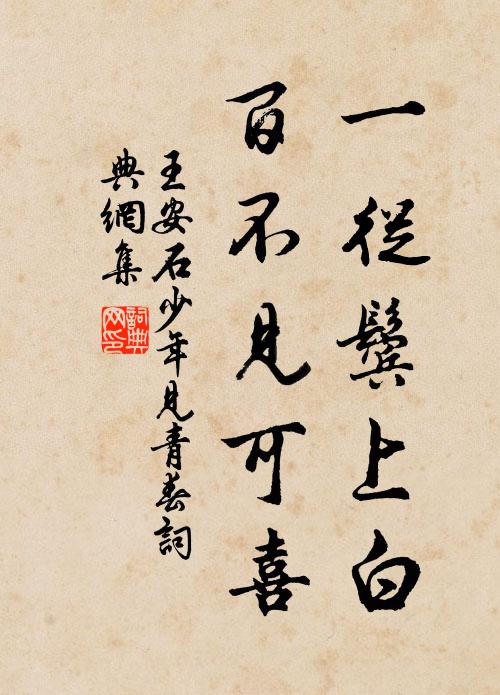 一從鬢上白
百不見可喜
王安石少年見青春詞
典網集
詞典网印